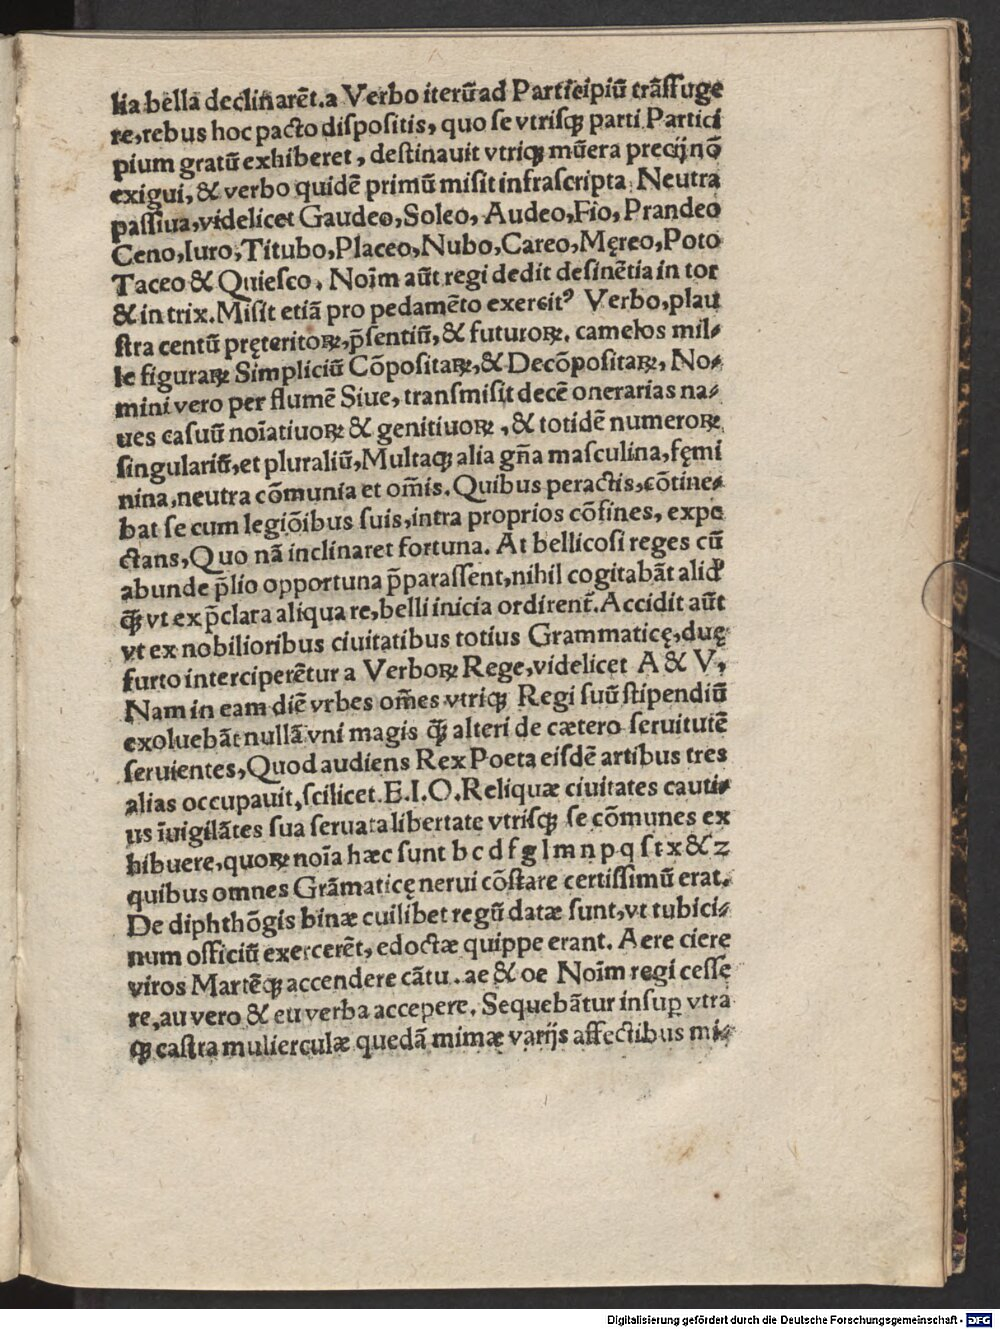 lia bella declinarēt.a Verbo iterū ad Participiū trāſſuge
re,rebus hoc pacto diſpoſitis, quo ſe vtriſꝗ parti Partici
pium gratū exhiberet, deſtinauit vtriꝗ mūera precij nō
exigui, & verbo quidē primū miſit infraſcripta Neutra
paſſiua,videlicet Gaudeo,Soleo, Audeo,Fio, Prandeo
Ceno,Iuro,Titubo,Placeo,Nubo,Careo,Męreo,Poto
Taceo & Quieſco. Noīm aūt regi dedit deſinētia in tor
& in trix.Miſit etiā pro pedamēto exercitꝰ Verbo,plau
ſtra centū pręteritoꝝ,p̄ſentiū, & futuroꝝ. camelos mil⸗
le figuraꝝ Simpliciū Cōpoſitaꝝ,& Decōpoſitaꝝ, No⸗
mini vero per flumē Siue, tranſmiſit decē onerarias na⸗
ues caſuū noīatiuoꝝ & genitiuoꝝ , & totidē numeroꝝ
ſingulariū,et pluraliū,Multaꝗ alia gn̄a maſculina,fęmi
nina,neutra cōmunia et om̄is. Quibus peractis,cōtine⸗
bat ſe cum legiōibus ſuis,intra proprios cōfines, expe
ctans,Quo nā inclinaret fortuna. At bellicoſi reges cū
abunde p̄lio opportuna p̄paraſſent,nihil cogitabāt aliđ
ꝗ̄ vt ex p̄clara aliqua re,belli inicia ordirent̄.Accidit aūt
vt ex nobilioribus ciuitatibus totius Grammaticę,duę
furto interciperētur a Verboꝝ Rege,videlicet A & V,
Nam in eam diē vrbes om̄es vtriꝗ Regi ſuū ſtipendiū
exoluebāt nullā vni magis ꝗ̄ alteri de cætero ſeruitutē
ſeruientes,Quod audiens Rex Poeta eiſdē artibus tres
alias occupauit,ſcilicet.E.I.O.Reliquæ ciuitates cauti⸗
us īuigilātes ſua ſeruata libertate vtriſꝗ ſe cōmunes ex
hibuere,quoꝝ noīa hæc ſunt b c d f g l m n p q ſ t x & z
quibus omnes Grāmaticę nerui cōſtare certiſſimū erat.
De diphthōgis binæ cuilibet regū datæ ſunt,vt tubici⸗
num officiū exercerēt, edoctæ quippe erant. Aere ciere
viros Martēꝗ accendere cātu . ae & oe Noīm regi ceſſe
re,au vero & eu verba accepere. Sequebātur inſuꝑ vtra
ꝗ caſtra mulierculæ quedā mimæ varijs affectibus mi⸗
Digitalisierung gefördert durch die Deutsche Forschungsgemeinschaft - DFG